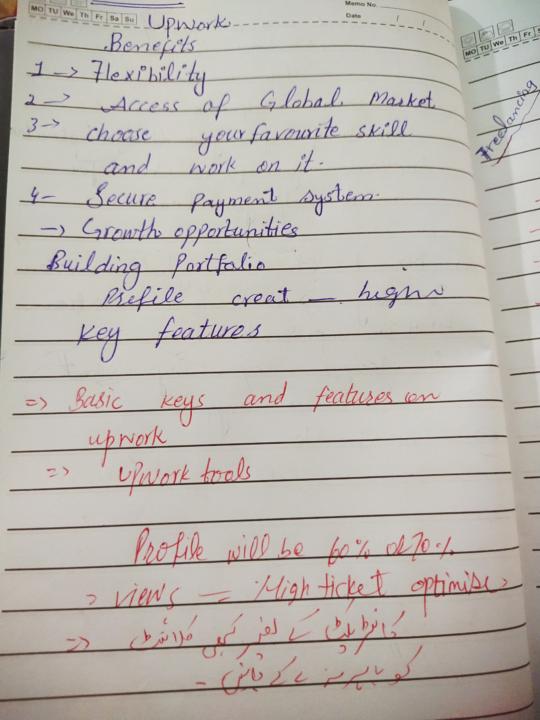 Memo No.
MO TU We Th Fr Sa Su
Date
Upwork
Benefits
1 → Flexibility
2 → Access of Global Market
3 → choose your favourite skill
and work on it.
4- Secure Payment system.
→ Growth opportunities
Building Portfolio
Profile creat — high
key features
=> Basic keys and features on
upwork
=> upwork tools
Profile will be 60% or 70%
> views = High ticket optimise
=> کے بغیر کبھی کلائنٹ
کو باہر
MO TU We Th Fr
Freelancing